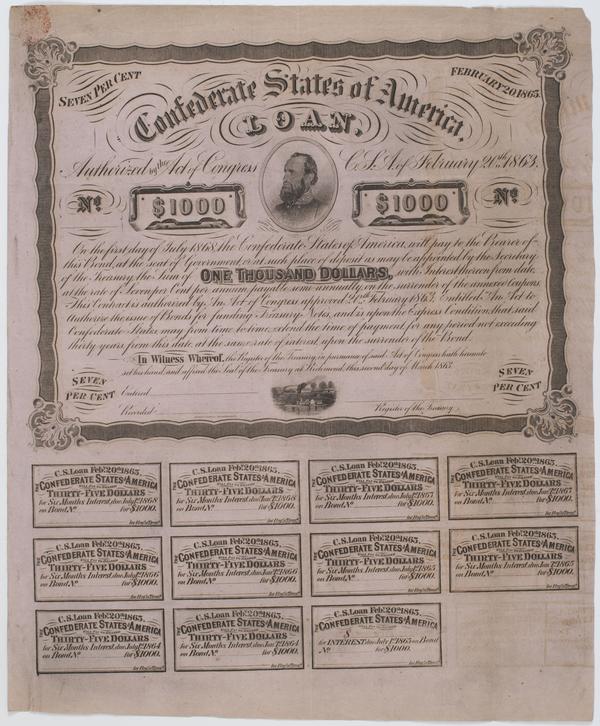 SEVEN PER CENT
FEBRUARY 20, 1863.
Confederate States of America.
LOAN,
Authorized by the Act of Congress C.S.A. of February 20th 1863.
No. $1000 $1000 No.
On the first day of July 1868, the Confederate States of America, will pay to the Bearer of
this Bond, at the seat of Government, or at such place of deposit as may be appointed by the Secretary
of the Treasury, the Sum of ONE THOUSAND DOLLARS, with Interest thereon from date,
at the rate of Seven per Cent per annum, payable semi-annually on the surrender of the annexed Coupons.
This Contract is authorized by An Act of Congress approved 20th February 1863, Entitled "An Act to
Authorize the issue of Bonds for funding Treasury Notes, and is upon the Express Condition, that said
Confederate States, may from time to time, extend the time of payment for any period not exceeding
thirty years from this date, at the same rate of interest, upon the surrender of the Bond.
In Witness Whereof, the Register of the Treasury, in pursuance of said Act of Congress hath hereunto
set his hand, and affixed the Seal of the Treasury at Richmond, this second day of March 1863.
SEVEN PER CENT
SEVEN PER CENT
Entered
Recorded
Register of the Treasury.
C.S. Loan Feb. 20th 1863.
THE CONFEDERATE STATES OF AMERICA
THIRTY-FIVE DOLLARS
for Six Months Interest, due July 1st 1868
on Bond, No. for $1000.
for Reg. of Treasy.
C.S. Loan Feb. 20th 1863.
THE CONFEDERATE STATES OF AMERICA
THIRTY-FIVE DOLLARS
for Six Months Interest, due Jan. 1st 1868
on Bond, No. for $1000.
for Reg. of Treasy.
C.S. Loan Feb. 20th 1863.
THE CONFEDERATE STATES OF AMERICA
THIRTY-FIVE DOLLARS
for Six Months Interest, due July 1st 1867
on Bond, No. for $1000.
for Reg. of Treasy.
C.S. Loan Feb. 20th 1863.
THE CONFEDERATE STATES OF AMERICA
THIRTY-FIVE DOLLARS
for Six Months Interest, due Jan. 1st 1867
on Bond, No. for $1000.
for Reg. of Treasy.
C.S. Loan Feb. 20th 1863.
THE CONFEDERATE STATES OF AMERICA
THIRTY-FIVE DOLLARS
for Six Months Interest, due July 1st 1866
on Bond, No. for $1000.
for Reg. of Treasy.
C.S. Loan Feb. 20th 1863.
THE CONFEDERATE STATES OF AMERICA
THIRTY-FIVE DOLLARS
for Six Months Interest, due Jan. 1st 1866
on Bond, No. for $1000.
for Reg. of Treasy.
C.S. Loan Feb. 20th 1863.
THE CONFEDERATE STATES OF AMERICA
THIRTY-FIVE DOLLARS
for Six Months Interest, due July 1st 1865
on Bond, No. for $1000.
for Reg. of Treasy.
C.S. Loan Feb. 20th 1863.
THE CONFEDERATE STATES OF AMERICA
THIRTY-FIVE DOLLARS
for Six Months Interest, due Jan. 1st 1865
on Bond, No. for $1000.
for Reg. of Treasy.
C.S. Loan Feb. 20th 1863.
THE CONFEDERATE STATES OF AMERICA
THIRTY-FIVE DOLLARS
for Six Months Interest, due July 1st 1864
on Bond, No. for $1000.
for Reg. of Treasy.
C.S. Loan Feb. 20th 1863.
THE CONFEDERATE STATES OF AMERICA
THIRTY-FIVE DOLLARS
for Six Months Interest, due Jan. 1st 1864
on Bond, No. for $1000.
for Reg. of Treasy.
C.S. Loan Feb. 20th 1863.
THE CONFEDERATE STATES OF AMERICA
$
for INTEREST due July 1st 1863 on Bond
No. for $1000.
for Reg. of Treasy.